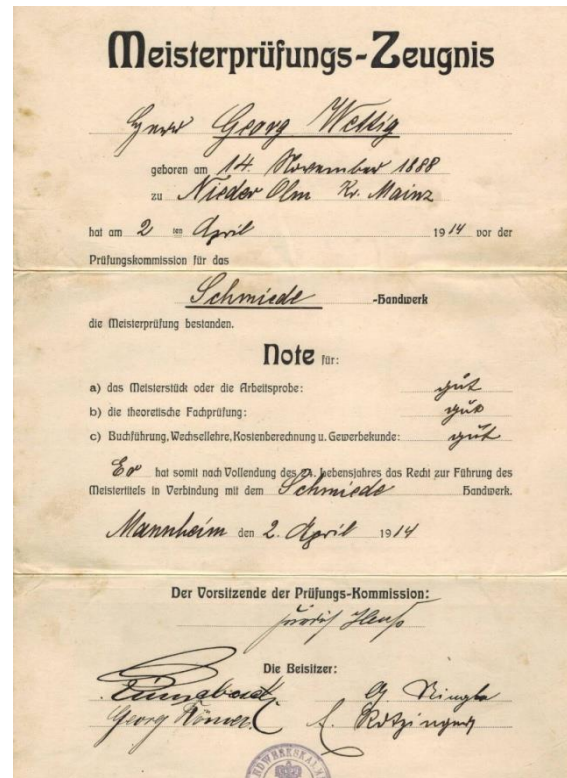 Meisterprüfungs-Zeugnis
Herr Georg Wettig
geboren am 14. November 1888
zu Nieder Olm Kr. Mainz
hat am 2 ten April 1914 vor der
Prüfungskommission für das
Schmiede -Handwerk
die Meisterprüfung bestanden.
Note für:
a) das Meisterstück oder die Arbeitsprobe: gut
b) die theoretische Fachprüfung: gut
c) Buchführung, Wechsellehre, Kostenberechnung u. Gewerbekunde: gut
Er hat somit nach Vollendung des 24. Lebensjahres das Recht zur Führung des
Meistertitels in Verbindung mit dem Schmiede Handwerk.
Mannheim den 2. April 1914
Der Vorsitzende der Prüfungs-Kommission:
Die Beisitzer:
Georg Römer